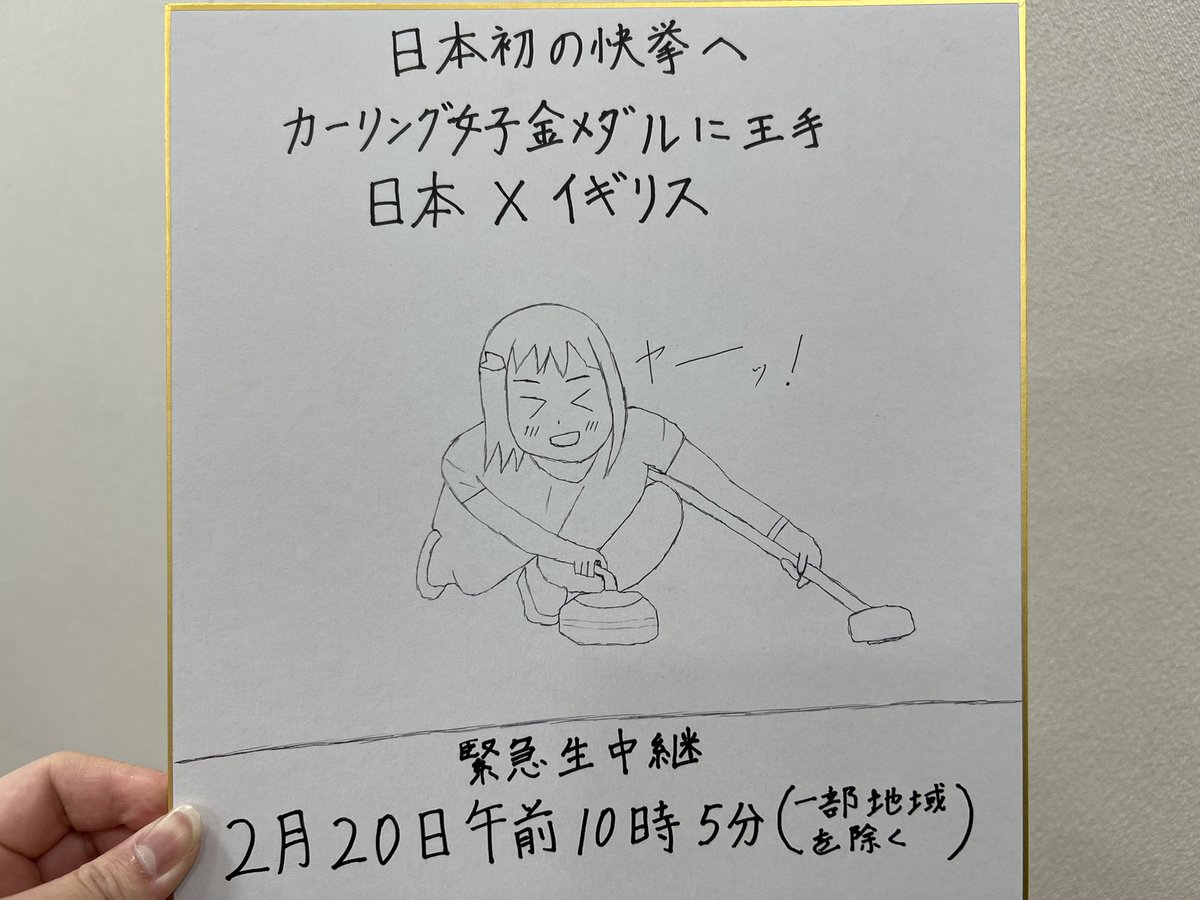 日本初の快挙へ
カーリング女子金メダルに王手
日本 × イギリス
ヤーーッ!
緊急生中継
2月20日午前10時5分(一部地域を除く)